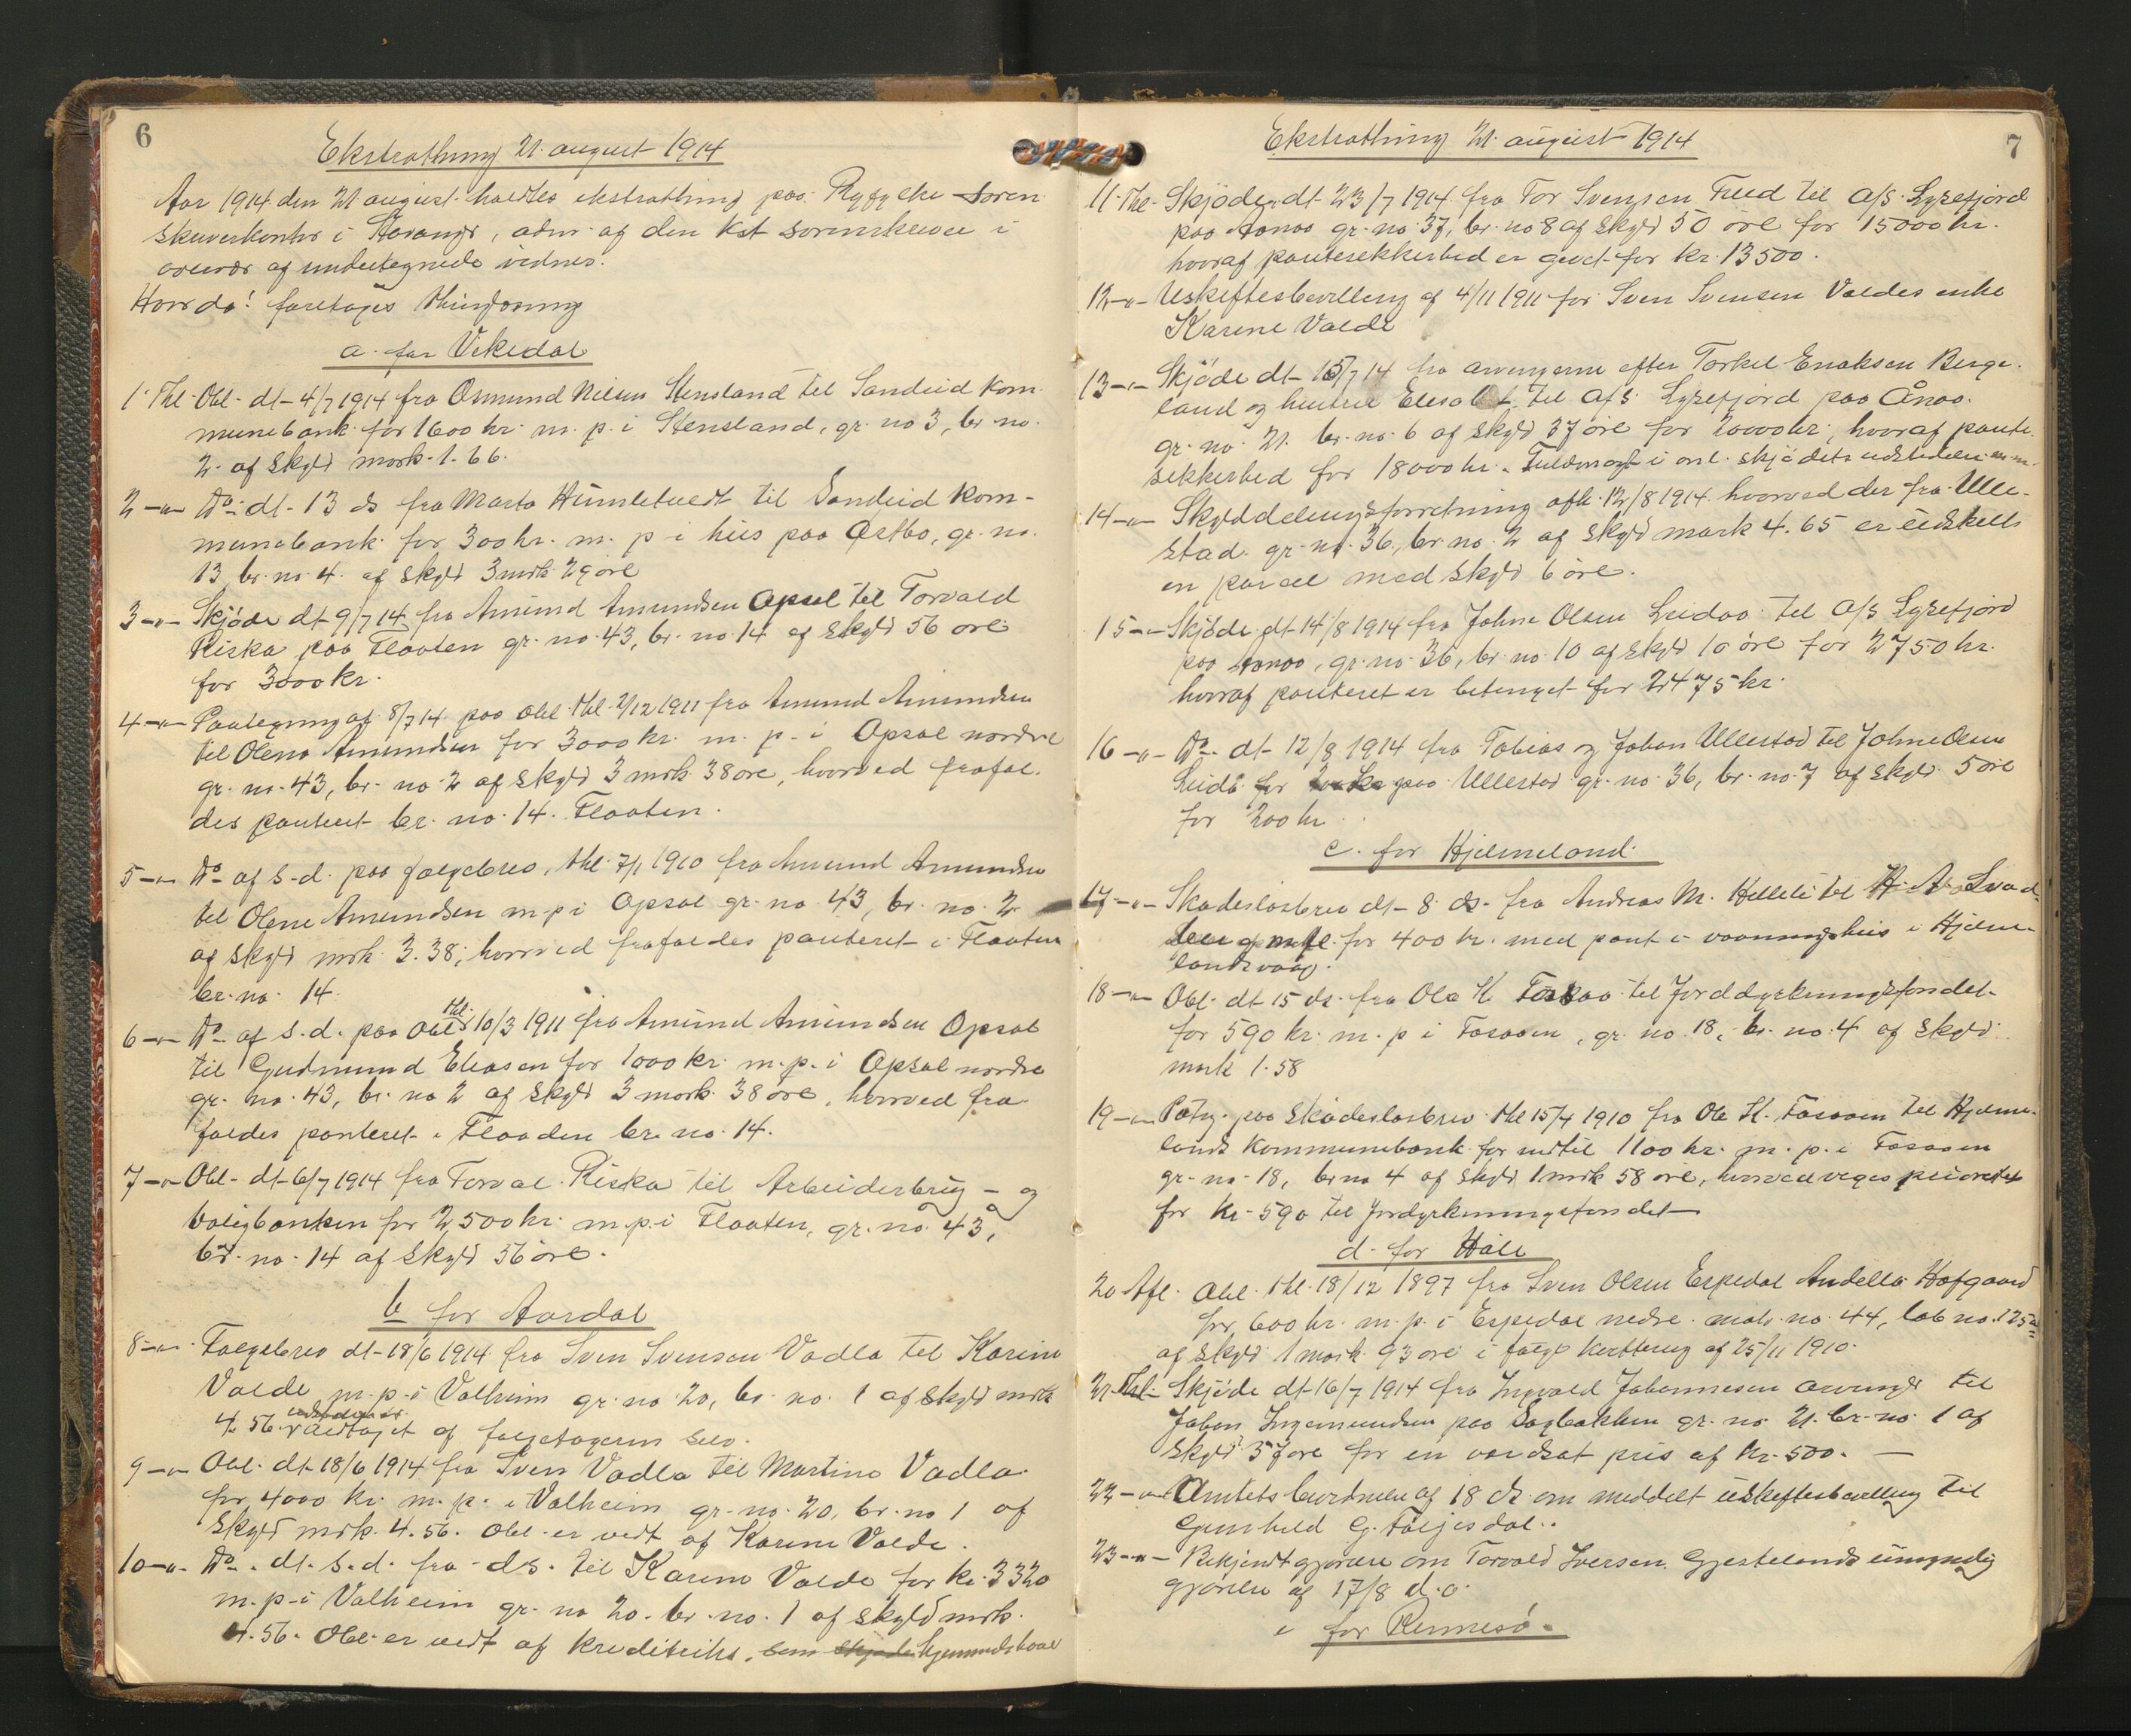 6
Ekstrathing 21. august 1914
Aar 1914 den 21 august holdtes ekstrathing paa Ryfylke soren
skriverkontor i Stavanger, adm. af den kst sorenskriver i
overvær af undertegnede vidner.
Hvor da! foretages thinglæsning
a. for Vikedal
1. Thl. Obl. dt. 4/7 1914 fra Osmund Nilsen Stensland til Sandeid kom-
munebank for 1600 kr. m. p. i Stensland, gr. no 3, br. no.
2. af skyld mark 1.66.
2 -"- Do. dt. 13 ds fra Marta Humletvedt til Sandeid kom-
munebank for 300 kr. m. p i hus paa Østbø, gr. no.
13 br. no. 4. af skyld 3 mrk. 29 øre
3 -"- Skjøde dt 9/7 14 fra Amund Amundsen Opsal til Torvald
Riska paa Flaaten gr. no. 43, br. no. 14 af skyld 56 øre
for 3000 kr.
4 -"- Paategning af 8/7 14. paa obl. thl. 2/12 1911 fra Amund Amundsen
til Olena Amundsen for 3000 kr. m. p. i Opsal nordre
gr. no. 43, br. no. 2 af skyld 3 mrk. 38 øre, hvorved frafal-
des panteret br. no. 14. Flaaten.
5 -"- Do af s. d. paa følgebrev, thl. 7/1 1910 fra Amund Amundsen
til Olene Amundsen m p i Opsal gr. no. 43, br. no. 2
af skyld mrk. 3.38, hvorved frafaldes panteret i Flaaten
br. no. 14.
6 -"- Do af s. d. paa obl. thl. 10/3 1911 fra Amund Amundsen Opsal
til Gudmund Eliasen for 1000 kr. m. p. i Opsal nordre
gr. no. 43, br. no 2 af skyld 3 mark 38 øre, hvorved fra-
faldes panteret i Flaaden br. no. 14.
7 -"- Obl. dt. 6/7 1914 fra Torval Riska til Arbeiderbrug- og
boligbanken for 2500 kr. m. p. i Flaaten, gr. no. 43,
br. no. 14 af skyld 56 øre.
b for Aardal
8 -"- Følgebrev dt. 18/6 1914 fra Sven Svensen Vadla til Karine
Valde m. p. i Valheim gr. no. 20, br. no. 1 af skyld mrk
4.56. vedtaget af følgetageren selv.
9 -"- Obl. dt 18/6 1914 fra Sven Vadla til Martine Vadla
for 4000 kr. m. p. i Valheim gr. no. 20, br. no 1 af
skyld mrk. 4.56. Obl. er vedt af Karine Valde.
10 -"- Do. dt. s. d. fra ds. til Karine Valde for kr. 3320
m. p. i Valheim gr. no 20. br. no. 1 af skyld mrk.
4.56. Obl. er vedt af kreditriks, som
7
Ekstrathing 21. august 1914
11. Thl. Skjøde dt. 23/7 1914 fra Tor Svensen Fued til A/S. Lysefjord
paa Aanaa gr. no. 37, br. no 8 af skyld 50 øre for 15000 kr.
hvoraf pantesikkerhed er givet for kr. 13500.
12 -"- Uskiftesbevilling af 4/11 1911 for Sven Svensen Valdes enke
Karine Valde
13 -"- Skjøde dt 15/7 14 fra arvingerne efter Torkel Enoksen Berge-
land og hustru Elisabet til A/S. Lysefjord paa Ånaa.
gr. no. 21. br. no. 6 af skyld 37 øre for 20000 kr., hvoraf pante-
sikkerhed for 18000 kr. Fuldmagt i orl. skjødets udstedelse m. m.
14 -"- Skylddelingsforretning afh. 12/8 1914. hvorved der fra Ulle-
stad gr. no. 36, br. no. 2 af skyld mark 4.65 er udskilt
en parcel med skyld 6 øre.
15 -"- Skjøde dt. 14/8 1914 fra Johne Olsen Leidaa til A/S Lysefjord
paa Aanaa, gr. no. 36, br. no. 10 af skyld 10 øre for 2750 kr.
hvoraf panteret er betinget for 2475 kr.
16 -"- Do. dt. 12/8 1914 fra Tobias og Johan Ullestad til Johne Olsen
Leidå for paa Ullestad gr. no. 36, br. no. 7 af skyld 5 øre
for 200 kr
c. for Hjelmeland
17 -"- Skadesløsbrev dt. 8. ds. fra Andreas M. Helleli til H. A. Svad-
berg m fl. for 400 kr. med pant i vaaningshus i Hjelme-
landsvaag.
18 -"- Obl. dt 15 ds. fra Ole K Fosaa til Jorddyrkningsfondet
for 590 kr. m. p i Fosaaen, gr. no. 18, br. no. 4 af skyld
mark 1.58
19 -"- Patg. paa skadesløsbrev thl 15/4 1910 fra Ole K. Fosaaen til Hjelme-
lands kommunebank for indtil 1100 kr. m. p. i Fosaaen
gr. no. 18, br no 4 af skyld 1 mrk 58 øre, hvorved viges prioritet
for kr. 590 til jordyrkningsfondet
d. for Håle
20 Afl. Obl. thl. 18/12 1897 fra Sven Olsen Espedal Andella Hofgaard
for 600 kr. m. p. i Espedal nedre. matr. no. 44, løb no. 125
af skyld 1 mark 93 øre i følge kvittering af 25/11 1910.
21. Thl. Skjøde dt. 16/7 1914 fra Ingvald Johannesen arvinger til
Johan Ingemundsen paa Sagbakken gr. no 21. br. no. 1 af
skyld 57 øre for en værdsat pris af kr. 500. —
22 -"- Amtets burdmeln af 18 ds. om meddelt uskiftesbevilling til
Gunhild G. Føljesdal.
23 -"- Bekjendtgjørelse om Torvald Iversen Gjestelands umyndig
gjørelse af 17/8 d. a.
e for Rennesø.